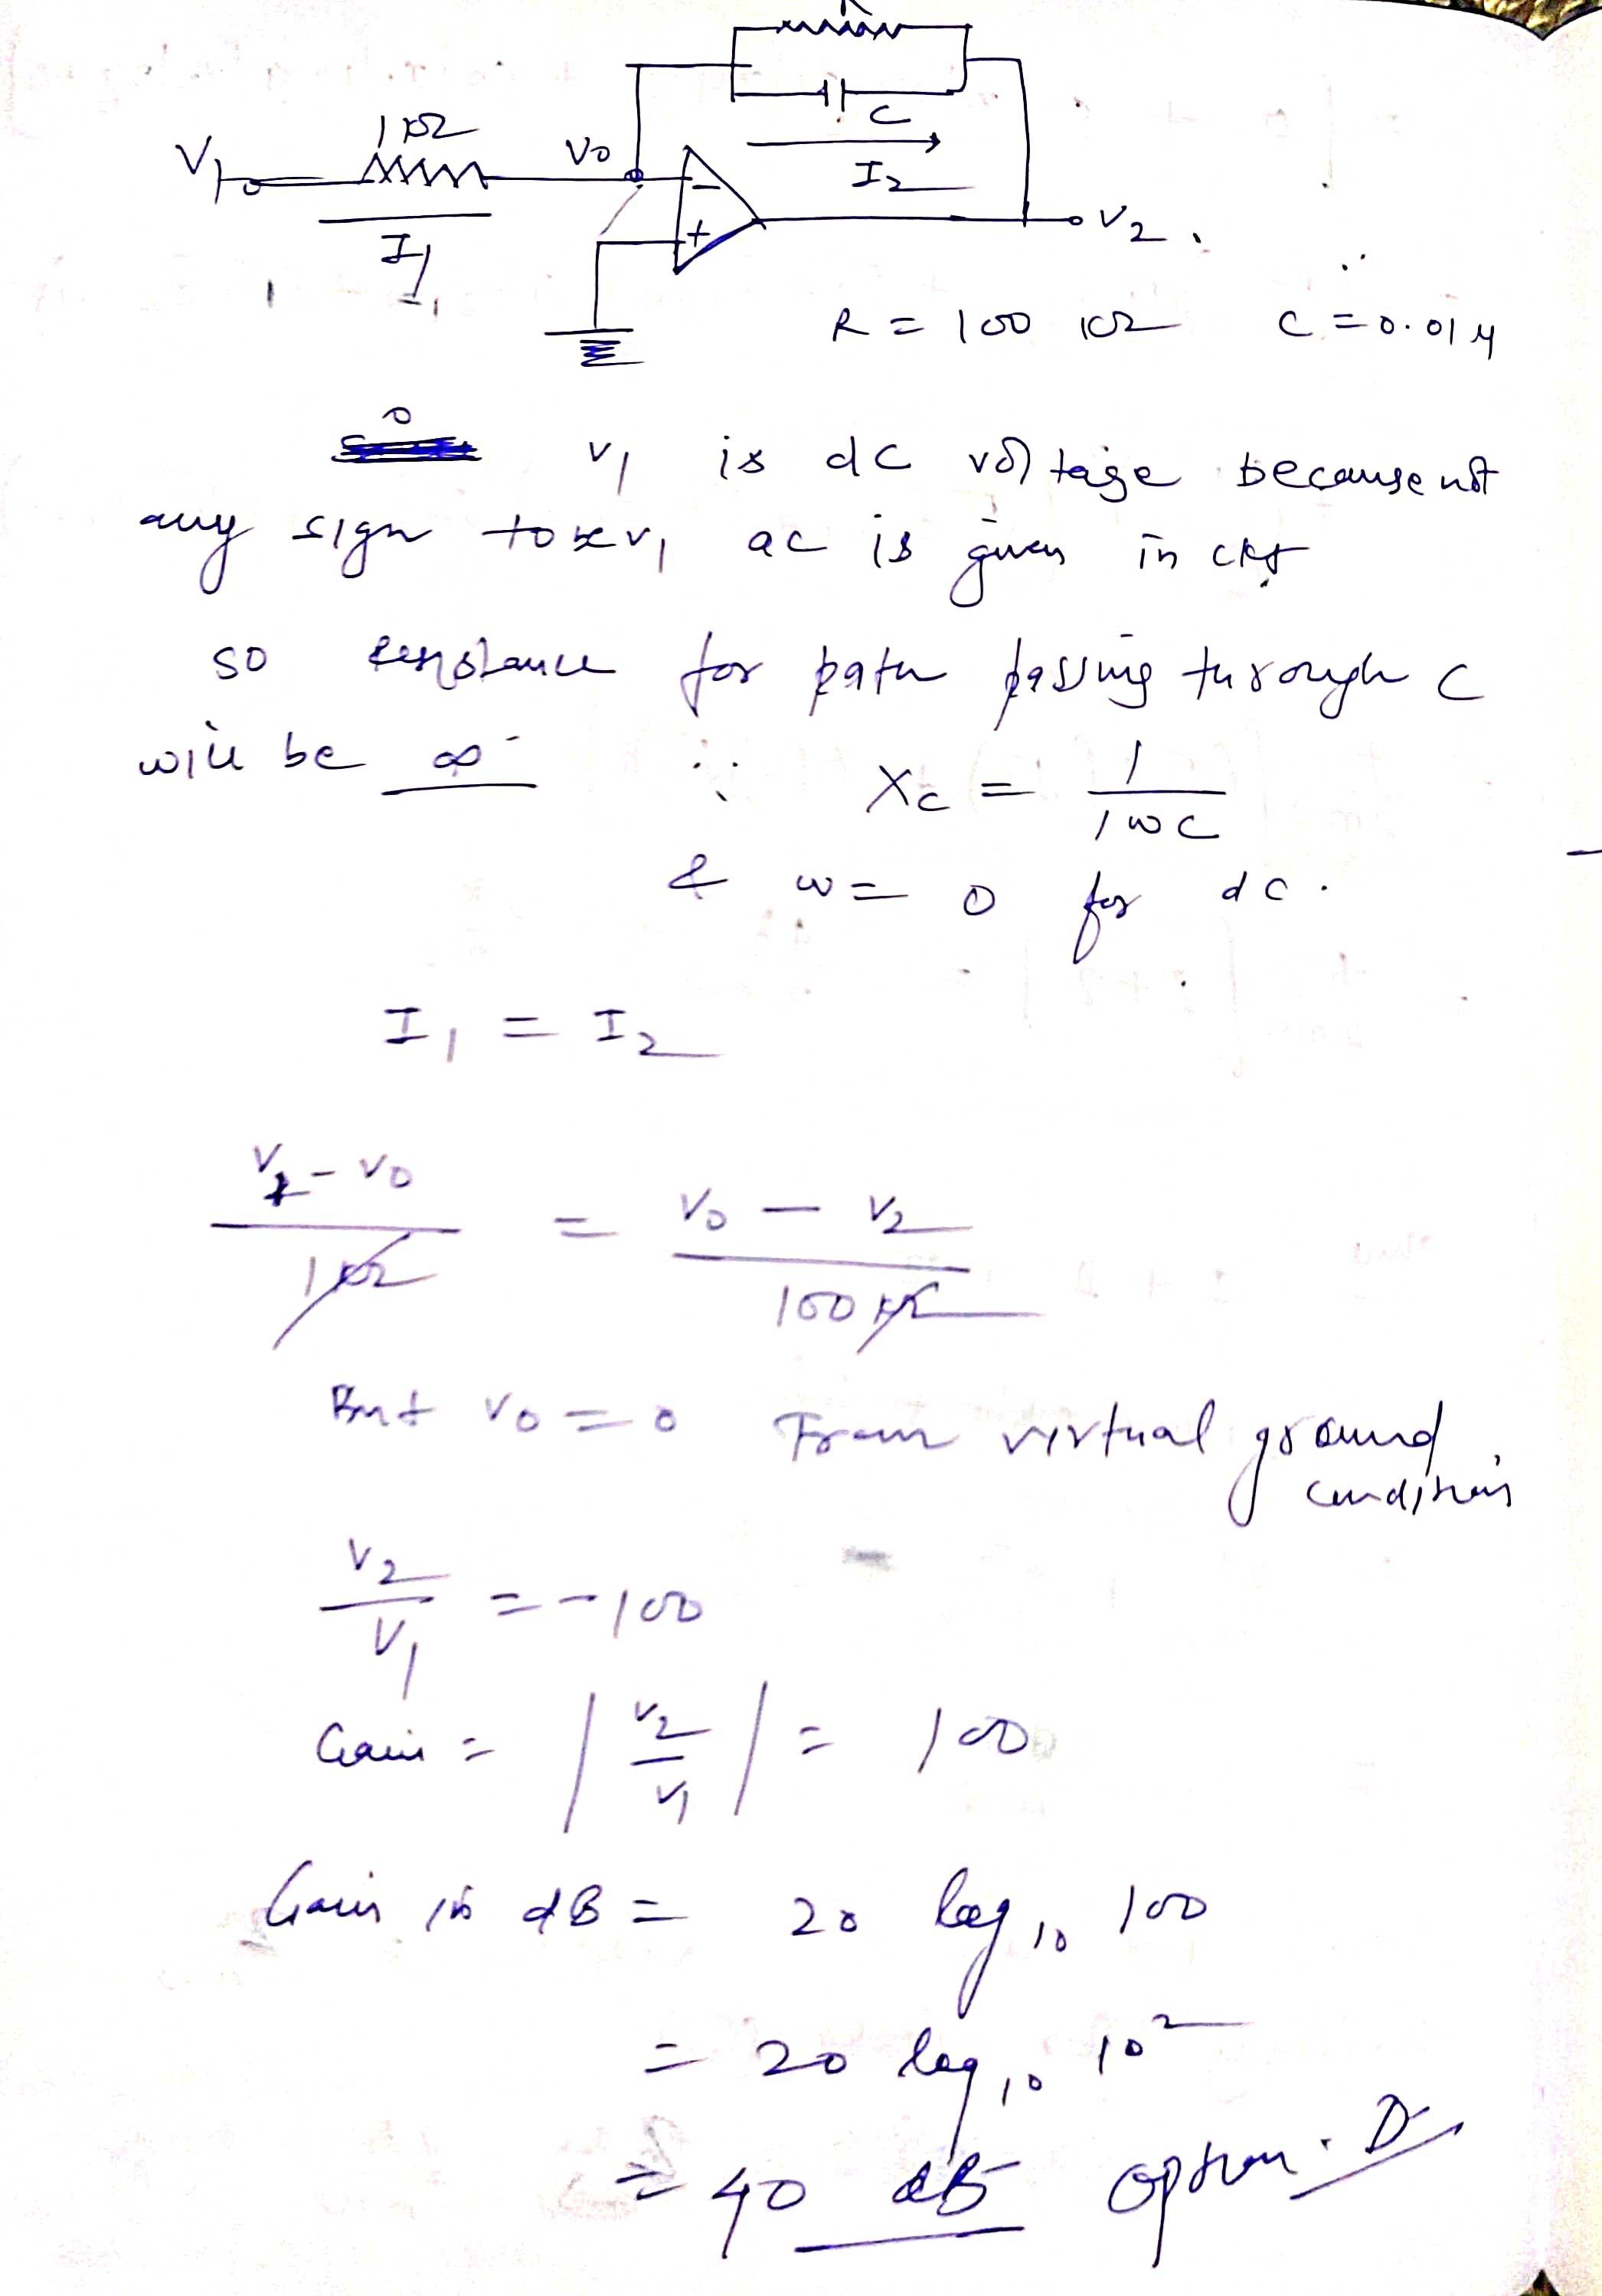 R
C
1 kΩ
V1
V0
I2
I1
I1
V2.
-
+
R = 100 kΩ    C = 0.01 μ
V1 is dc voltage because not
any sign to be V1 ac is given in ckt
so resistance for path passing through C
will be ∞ ∵ Xc = 1/jωC
& ω = 0 for dc.
I1 = I2
(V1 - V0)/1kΩ = (V0 - V2)/100kΩ
But V0 = 0 From virtual ground
condition
V2/V1 = -100
Gain = |V2/V1| = 100
Gain in dB = 20 log10 100
= 20 log10 10²
= 40 dB option. D